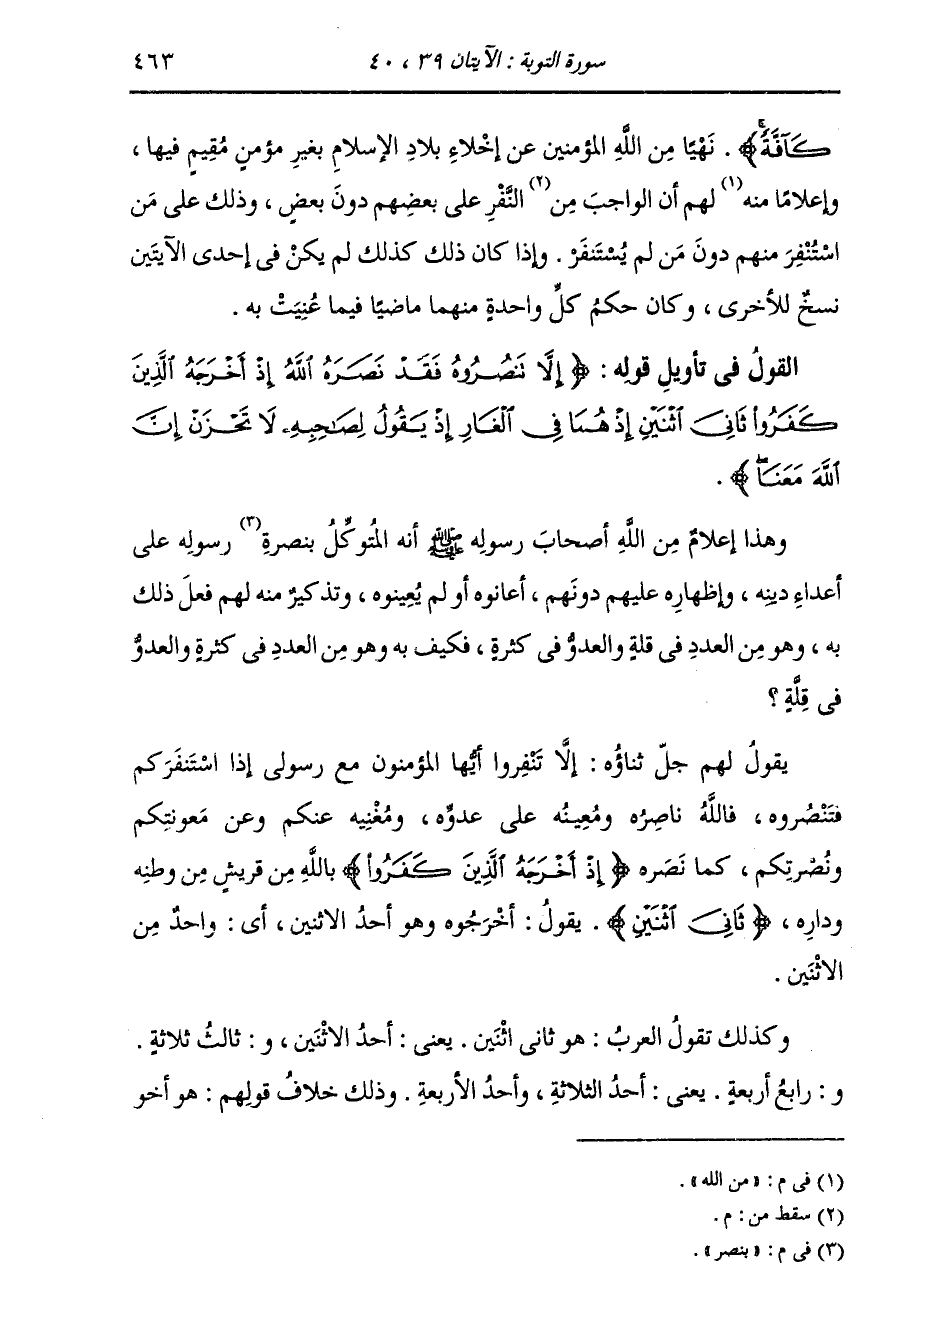 سورة التوبة : الآيتان ٣٩ ، ٤٠ ٤٦٣
كَآفَّةً ﴾ . نَهْيًا مِن اللَّهِ المؤمنين عن إخْلاءِ بلادِ الإسلامِ بغيرِ مؤمنٍ مُقِيمٍ فيها ،
وإعلامًا منه(١) لهم أن الواجبَ مِن(٢) النَّفْرِ على بعضِهم دونَ بعضٍ ، وذلك على مَن
اسْتُنْفِرَ منهم دونَ مَن لم يُسْتَنفَرْ . وإذا كان ذلك كذلك لم يكنْ فى إحدى الآيتَين
نسخٌ للأخرى ، وكان حكمُ كلِّ واحدةٍ منهما ماضيًا فيما عُنِيَتْ به .
القولُ فى تأويلِ قولِه : ﴿ إِلَّا تَنصُرُوهُ فَقَدْ نَصَرَهُ ٱللَّهُ إِذْ أَخْرَجَهُ ٱلَّذِينَ
كَفَرُواْ ثَانِىَ ٱثْنَيْنِ إِذْ هُمَا فِى ٱلْغَارِ إِذْ يَقُولُ لِصَٰحِبِهِۦ لَا تَحْزَنْ إِنَّ
ٱللَّهَ مَعَنَاۖ ﴾ .
وهذا إعلامٌ مِن اللَّهِ أصحابَ رسولِه ﷺ أنه المُتوكِّلُ بنصرةِ(٣) رسولِه على
أعداءِ دينِه ، وإظهارِه عليهم دونَهم ، أعانوه أو لم يُعِينوه ، وتذكيرٌ منه لهم فعلَ ذلك
به ، وهو مِن العددِ فى قلةٍ والعدوُّ فى كثرةٍ ، فكيف به وهو مِن العددِ فى كثرةٍ والعدوُّ
فى قِلَّةٍ ؟
يقولُ لهم جلّ ثناؤُه : إلَّا تَنْفِروا أيُّها المؤمنون مع رسولى إذا اسْتَنفَركم
فتَنْصُروه ، فاللَّهُ ناصِرُه ومُعِينُه على عدوِّه ، ومُغْنِيه عنكم وعن مَعونتِكم
ونُصْرتِكم ، كما نَصَره ﴿ إِذْ أَخْرَجَهُ ٱلَّذِينَ كَفَرُواْ ﴾ باللَّهِ مِن قريشٍ مِن وطنِه
ودارِه ، ﴿ ثَانِىَ ٱثْنَيْنِ ﴾ . يقولُ : أخْرَجُوه وهو أحدُ الاثنين ، أى : واحدٌ مِن
الاثْنَين .
وكذلك تقولُ العربُ : هو ثانى اثْنَين . يعنى : أحدُ الاثْنَين ، و : ثالثُ ثلاثةٍ .
و : رابعُ أربعةٍ . يعنى : أحدُ الثلاثةِ ، وأحدُ الأربعةِ . وذلك خلافُ قولِهم : هو أخو
(١) فى م : « من الله » .
(٢) سقط من : م .
(٣) فى م : « بنصر » .